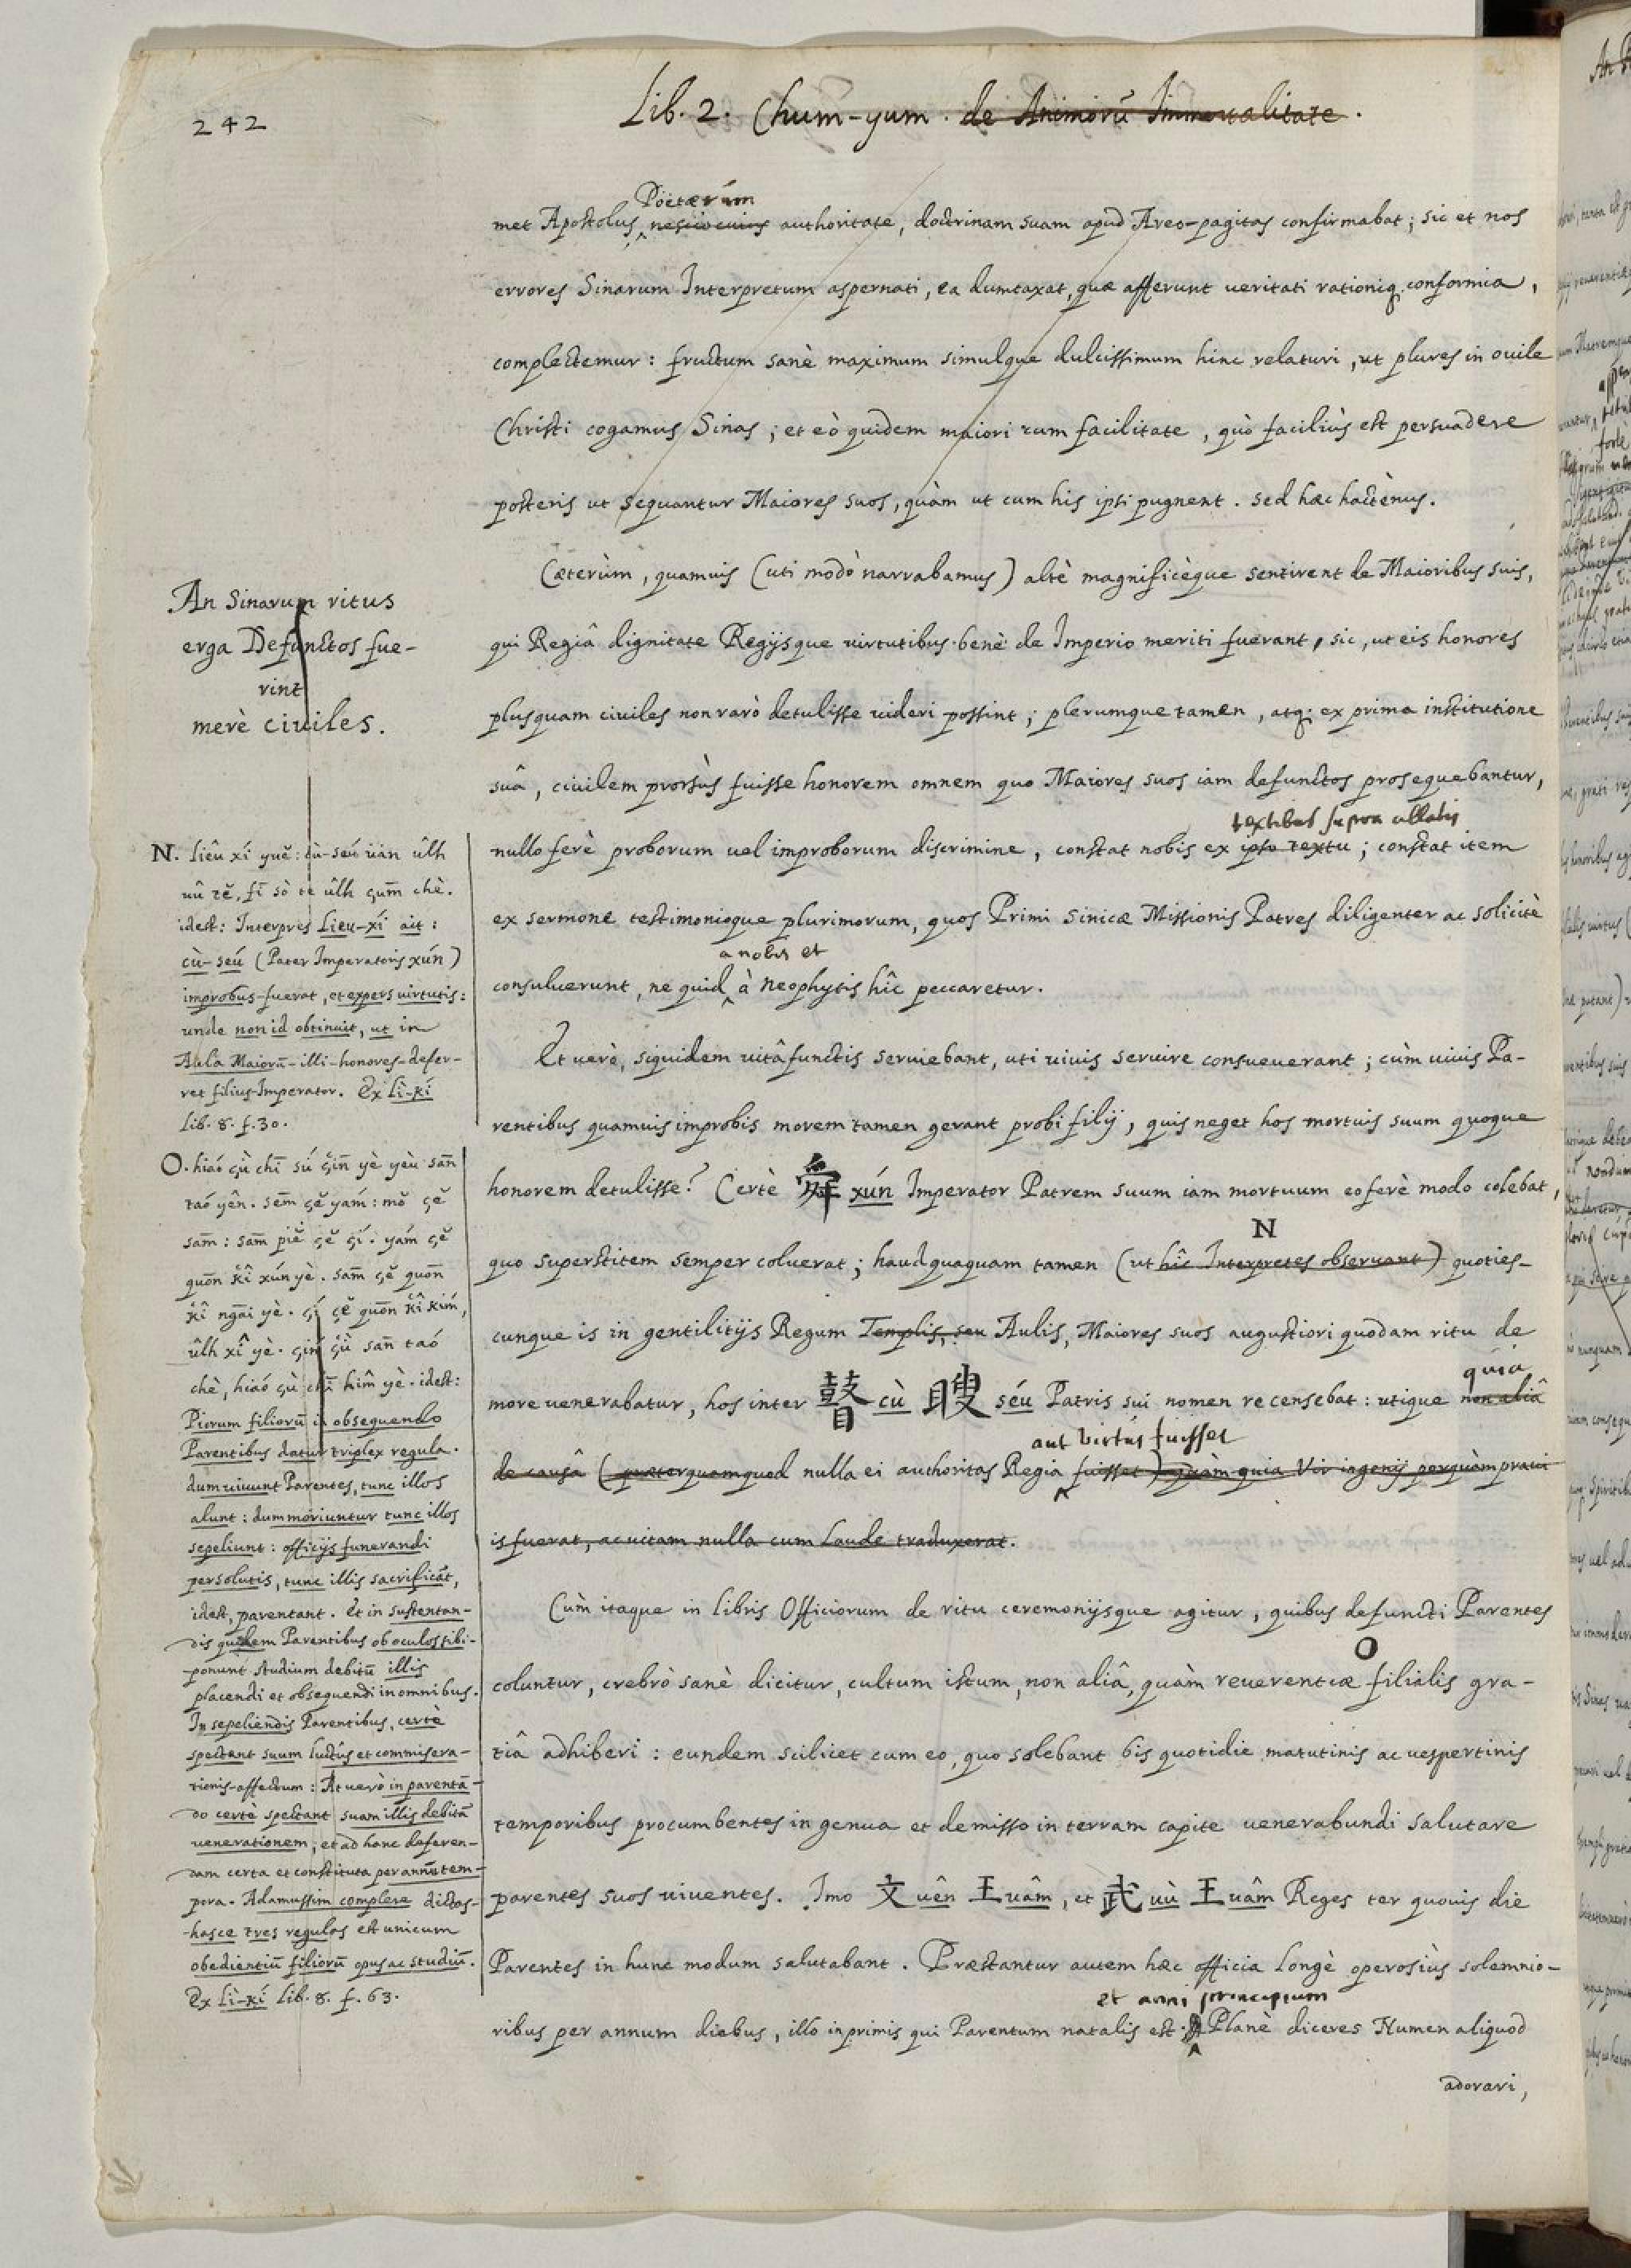 242
Lib. 2. Chum-yum. de Animorū Immortalitate.
Poëtarum
met Apostolus, nescio cuius authoritate, doctrinam suam apud Areo-pagitas confirmabat; sic et nos
errores Sinarum Interpretum aspernati, ea dumtaxat, quæ afferunt ueritati rationiq; conformia,
complectemur: fructum sanè maximum simulque dulcissimum hinc relaturi, ut plures in ouile
Christi cogamus Sinas; et eò quidem maiori cum facilitate, quò faciliùs est persuadere
posteris ut sequantur Maiores suos, quàm ut cum his ipsi pugnent. sed hæc hactènus.
An Sinarum ritus
erga Defunctos fue-
rint
merè ciuiles.
Cæterùm, quamuis (uti modò narrabamus) altè magnificèque sentirent de Maioribus suis,
qui Regiâ dignitate Regijsque uirtutibus benè de Imperio meriti fuerant, sic, ut eis honores
plusquam ciuiles non rarò detulisse uideri possint; plerumque tamen, atq; ex prima institutione
suâ, ciuilem prorsùs fuisse honorem omnem quo Maiores suos iam defunctos prosequebantur,
textibus supra allatis
nullo ferè proborum uel improborum discrimine, constat nobis ex ipso textu; constat item
ex sermone testimonioque plurimorum, quos Primi Sinicæ Missionis Patres diligenter ac solicitè
a nobis et
consuluerunt, ne quid à neophytis hîc peccaretur.
Et uerè, siquidem uitâ functis seruiebant, uti uiuis seruire consueuerant; cùm uiuis Pa-
rentibus quamuis improbis morem tamen gerant probi filij, quis neget hos mortuis suum quoque
honorem detulisse? Certè 舜 xún Imperator Patrem suum iam mortuum eo ferè modo colebat,
N
quo superstitem semper coluerat; haudquaquam tamen (ut hîc Interpretes obseruant) quoties-
cunque is in gentilitijs Regum Templis, seu Aulis, Maiores suos augustiori quodam ritu de
quia
more uenerabatur, hos inter 瞽 cù 瞍 séu Patris sui nomen recensebat: utique non aliâ
aut virtus fuisset
de causâ (præterquamquod nulla ei authoritas Regia fuisset) quàm quia Vir ingenij perquàm praui
is fuerat, ac uitam nulla cum laude traduxerat.
Cùm itaque in libris Officiorum de ritu ceremonijsque agitur, quibus defuncti Parentes
O
coluntur, crebrò sanè dicitur, cultum istum, non aliâ, quàm reuerentiæ filialis gra-
tiâ adhiberi: eundem scilicet cum eo, quo solebant bis quotidie matutinis ac uespertinis
temporibus procumbentes in genua et demisso in terram capite uenerabundi salutare
parentes suos uiuentes. Imo 文 uên 王 uâm, et 武 uù 王 uâm Reges ter quouis die
Parentes in hunc modum salutabant. Præstantur autem hæc officia longè operosiùs solemnio-
et anni principium
ribus per annum diebus, illo inprimis qui Parentum natalis est; Planè diceres Numen aliquod
adorari,
N. liêu xí yuĕ: cù-séu uân ûlh
uû tĕ, fī sò te ûlh çum̄ chè.
idest: Interpres Lieu-xi ait:
cù-séu (Pater Imperatoris xún)
improbus-fuerat, et expers uirtutis:
unde non id obtinuit, ut in
Aula Maiorū-illi-honores-defer-
ret filius-Imperator. Ex Lì-kí
lib. 8. f. 30.
O. hiaó çù chī sú çin̄ yè yèu san̄
taó yên. sem̄ çĕ yam: mŏ çĕ
sam̄: sam̄ piĕ çĕ çí. yám çĕ
quōn kî xún yè. sam̄ çĕ quōn
kî ngāi yè. çí çĕ quōn kî kim,
ûlh xî yè. çin çù san̄ taó
chè, hiaó çù chī him̂ yè. idest:
Piorum filiorū in obsequendo
Parentibus datur triplex regula.
dum uiuunt Parentes, tunc illos
alunt: dum moriuntur tunc illos
sepeliunt: officijs funerandi
persolutis, tunc illis sacrificāt,
idest, parentant. Et in sustentan-
dis quidem Parentibus ob oculos sibi-
ponunt studium debitū illis
placendi et obsequendi in omnibus.
In sepeliendis Parentibus, certè
spectant suum luctûs et commisera-
tionis-affectum: At uerò in parentā-
do certè spectant suam illis debitā
uenerationem; et ad hanc deferen-
dam certa et constituta per annū tem-
pora. Adamussim complere dictas-
-hasce tres regulas est unicum
obedientiū filiorū opus ac studiū.
Ex Lì-kí lib. 8. f. 63.